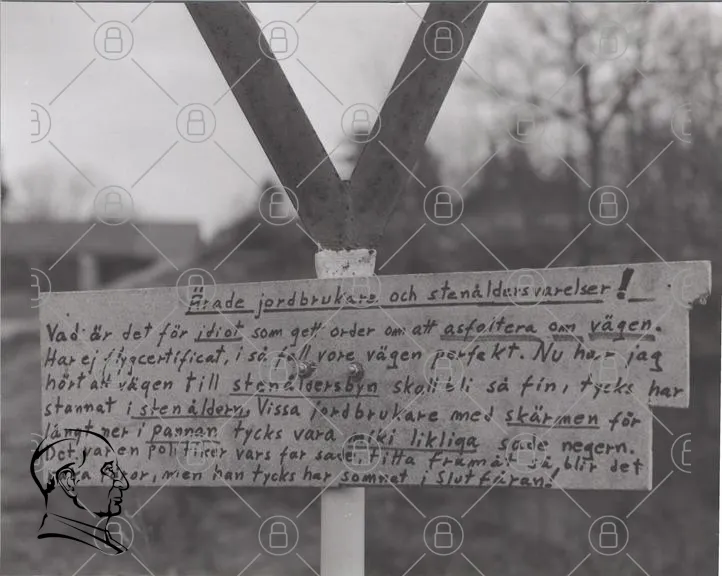 Ärade jordbrukare och stenåldersvarelser!
Vad är det för idiot som gett order om att asfaltera om vägen.
Har ej flygcertificat, i så fall vore vägen perfekt. Nu har jag
hört att vägen till stenåldersbyn skall bli så fin, tycks har
stannat i stenåldern. Vissa jordbrukare med skärmen för
långt ner i pannan tycks vara riki likliga sade negern.
Det var en politiker vars far sade, titta framåt så blir det
bra, men han tycks har somnat i slutfåran.